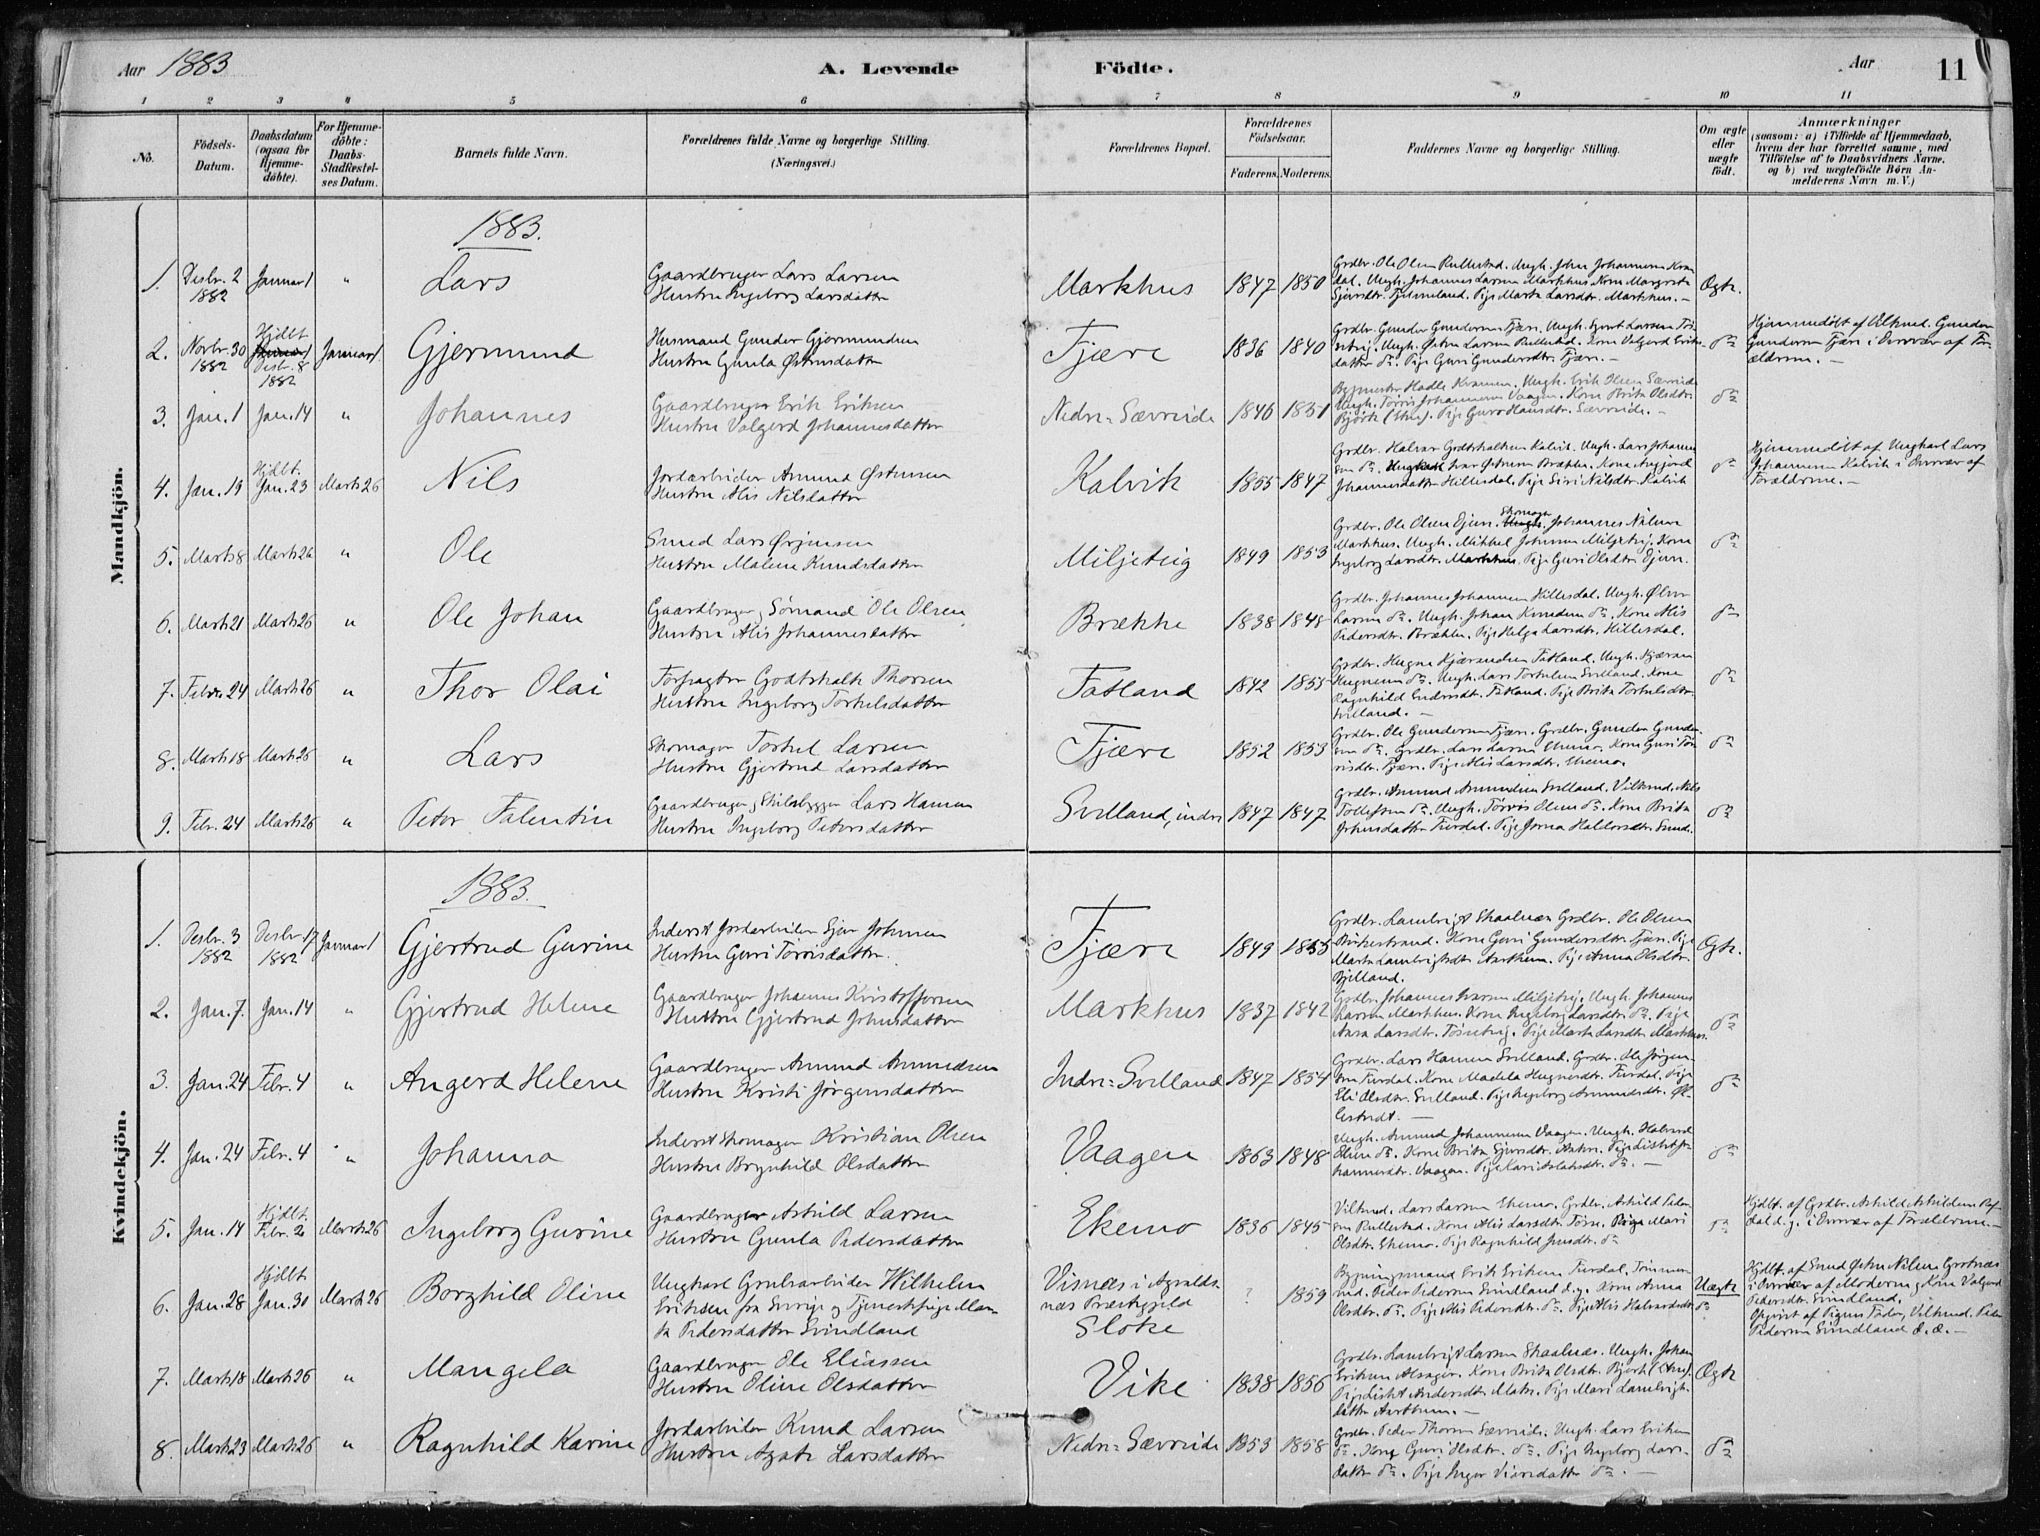 Aar 1883 A. Levende Födte. Aar 11
1 2 3 4 5 6 7 8 9 10 11
No.
Födsels-Datum.
Daabsdatum (ogsaa for Hjemme-döbte).
For Hjemme-döbte: Daabs-Stadfæstel-ses Datum.
Barnets fulde Navn.
Forældrenes fulde Navne og borgerlige Stilling. (Næringsvei.)
Forældrenes Bopæl.
Forældrenes Födselsaar.
Faderens. Moderens.
Faddernes Navne og borgerlige Stilling.
Om ægte eller uægte födt.
Anmærkninger
(saasom: a) i Tilfælde af Hjemmedaab, hvem der har forrettet samme, med Tilföielse af to Daabsvidners Navne. og b) ved uægtefödte Börn An-melderens Navn m.V.)
Mandkjön.
1883.
1. Desbr. 2 1882 Januar 1 " Lars
Gaardbruger Lars Larsen
Hustru Ingeborg Larsdatter
Markhus 1847 1850
Grdbr. Ole Olsen Rullestad. Ungk. John Johannesen
Pige Marta Larsdtr. Markhus.
Ægte.
2. Novbr. 30 1882 Hjdbt. Desbr. 8 1882 Januar 1. Gjermund
Husmand Gunder Gjermundsen
Hustru Gunla Østensdatter
Fjære 1836 1840
Grdbr. Gunder Gundersen Fjære. Ungk.
datter do. Pige Guri Gundersdtr. Fjære.
do
Hjemmedöbt af Gunder
Gundersen Fjære i Overvær af For-
ældrene.
3. Jan. 1 Jan. 14 " Johannes
Gaardbruger Erik Eriksen
Hustru Valgerd Johannesdatter
Nedre=Sævreide 1846 1851
Kone Brita Olsdtr.
Pige Guro Hansdtr. Sævreide.
do
4. Jan. 19 Hjdbt. Jan. 23 Marts 26 Nils
Jordarbeider Amund Østensen
Hustru Alis Nilsdatter
Kalvik 1855 1847
Grdbr. Halvor Godtskalksen Kalvik. Ungk. Lars Johannes-
sen do. Ivar Østensen Brække. Kone
Johannesdatter Hillesdal. Pige Siri Nilsdtr. Kalvik
do
Hjemmedöbt af Ungkarl Lars
Johannesen Kalvik i Overvær af
Forældrene.
5. Marts 8 Marts 26 " Ole
Smed Lars Ørjansen
Hustru Malene Knudsdatter
Miljeteig 1849 1853
Grdbr. Ole Olsen Ejene. Skomager Johannes Nilsen
Markhus. Ungk. Mikkel Johnsen Miljeteig. Kone
Ingeborg Larsdtr. Markhus. Pige Guri Olsdtr. Ejene.
do
6. Marts 21 Marts 26 " Ole Johan
Gaardbruger, Sömand Ole Olsen
Hustru Alis Johannesdatter
Brække 1838 1848
Grdbr. Johannes Johannesen Hillesdal. Ungk.
Larsen do. Ungk. Johan Knudsen do. Kone Alis
Pedersdtr. Brække. Pige Helga Larsdtr. Hillesdal.
do
7. Febr. 24 Marts 26 " Thor Olai
Forpagter Godtskalk Thorsen
Hustru Ingeborg Torkelsdatter
Fatland 1842 1855
Grdbr. Hugne Kjærandsen Fatland. Ungk. Kjæran
Hugnesen do. Ungk. Lars Torkelsen Svelland. Kone
Ragnhild Endresdtr. Fatland. Pige Brita Torkelsdtr.
Svelland.
do
8. Marts 18 Marts 26 " Lars
Skomager Torkel Larsen
Hustru Gjertrud Larsdatter
Fjære 1852 1853
Grdbr. Ole Gundersen Fjære. Grdbr. Gunder Gunder-
sen do. Grdbr. Lars Larsen Ekemo. Kone Guri Tør-
risdtr. Fjære. Pige Alis Larsdtr. Ekemo.
do
9. Febr. 24 Marts 26 " Peter Falentin
Gaardbruger, Skibsbygger Lars Hansen
Hustru Ingeborg Petersdatter
Svelland, indre 1847 1847
Grdbr. Amund Amundsen Svelland. Nils
Tollefsen do. Ungk. Tørris Olsen do. Kone Brita
Johnsdatter Furdal. Pige
do
Kvindekjön.
1883.
1. Desbr. 3 1882 Desbr. 17 1882 Januar 1 Gjertrud Gurine
Inderst Jordarbeider Sjur Johnsen
Hustru Guri Tørrisdatter.
Fjære 1849 1855
Grdbr. Lambrigt Skaalnæs. Grdbr. Ole Olsen
Birkestrand. Kone Guri Gundersdtr. Fjære. Pige
Marta Lambrigtsdtr. Aartheim. Pige Anna Olsdtr.
Fjelland.
Ægte.
2. Jan. 7. Jan. 14 " Gjertrud Helene
Gaardbruger Johannes Kristoffersen
Hustru Gjertrud Johnsdatter
Markhus 1837 1842
Grdbr. Johannes Iversen Miljeteig. Ungk. Johannes
Larsen Markhus. Kone Ingeborg Larsdtr. do. Pige
Anna Larsdtr. Pige Marta Larsdtr. Markhus.
do
3. Jan. 24 Febr. 4 " Angerd Helene
Gaardbruger Amund Amundsen
Hustru Kristi Jørgensdatter
Indre=Svelland 1847 1854
Grdbr. Lars Hansen Svelland. Grdbr. Ole Jørgen-
sen Furdal. Kone Madela Hugnesdtr. Furdal. Pige
Eli Olsdtr. Svelland. Pige Ingeborg Amundsdtr.
do
4. Jan. 24 Febr. 4 " Johanna
Inderst Skomager Kristian Olsen
Hustru Brynhild Olsdatter
Vaagen 1863 1848
Ungk. Amund Johannesen Vaagen. Ungk. Halvord
Kone Brita Sjursdtr. Pige Lisbet Jo-
hannesdtr. Vaagen. Pige Kari Aslaksdtr. do.
do
5. Jan. 14 Hjdbt. Febr. 2 Marts 26 Ingeborg Gurine
Gaardbruger Askild Larsen
Hustru Gunla Pedersdatter
Ekemo 1836 1845
Lars Larsen Ekemo. Grdbr. Askild Peder-
sen Rullestad. Kone Alis Larsdtr. Pige Mari
Olsdtr. Ekemo. Pige Ragnhild do
do
Hjdbt. af Grdbr. Askild Askildsen
i Overvær af Forældrene.
6. Jan. 28 Hjdbt. Jan. 30 Marts 26 Borghild Oline
Ungkarl Grubearbeider Wilhelm
Eriksen fra Sverige og Tjenestepige Mar-
ta Pedersdatter Svindland
Visnæs i Avalds-
næs Præstegjeld
Sloke
? 1859
Bygningsmand Erik Eriksen Furdal. Tømmer-
md. Peder Pedersen Svindland d.y. Kone Anna
Olsdtr. do. Pige Alis Pedersdtr. do. Pige Alis Halvordsdtr. do
Uægte
Hjdbt. af Smed Østen Nilsen
i Overvær af Moderen og Kone Valgerd
Pedersdtr. Svindland.
Opgivet af Pigens Fader, Peder
Pedersen Svindland d.æ.
7. Marts 18 Marts 26 " Mangela
Gaardbruger Ole Eliassen
Hustru Oline Olsdatter
Vike 1838 1856
Grdbr. Lambrigt Larsen Skaalnæs. Ungk. Johan
Eriksen Alsager. Kone Brita Olsdtr.
Pige Lisbet Andersdtr. Pige Mari Lambrigts-
datter Aartheim.
Ægte
8. Marts 23 Marts 26 " Ragnhild Karine
Jordarbeider Knud Larsen
Hustru Agate Larsdatter
Nedre=Sævreide 1853 1858
Grdbr. Peder Thorsen Sævreide. Ungk. Lars Eriksen
do. Kone Guri Olsdtr. do. Pige Ingeborg Lars-
datter do. Pige Inger Viarsdatter do.
do